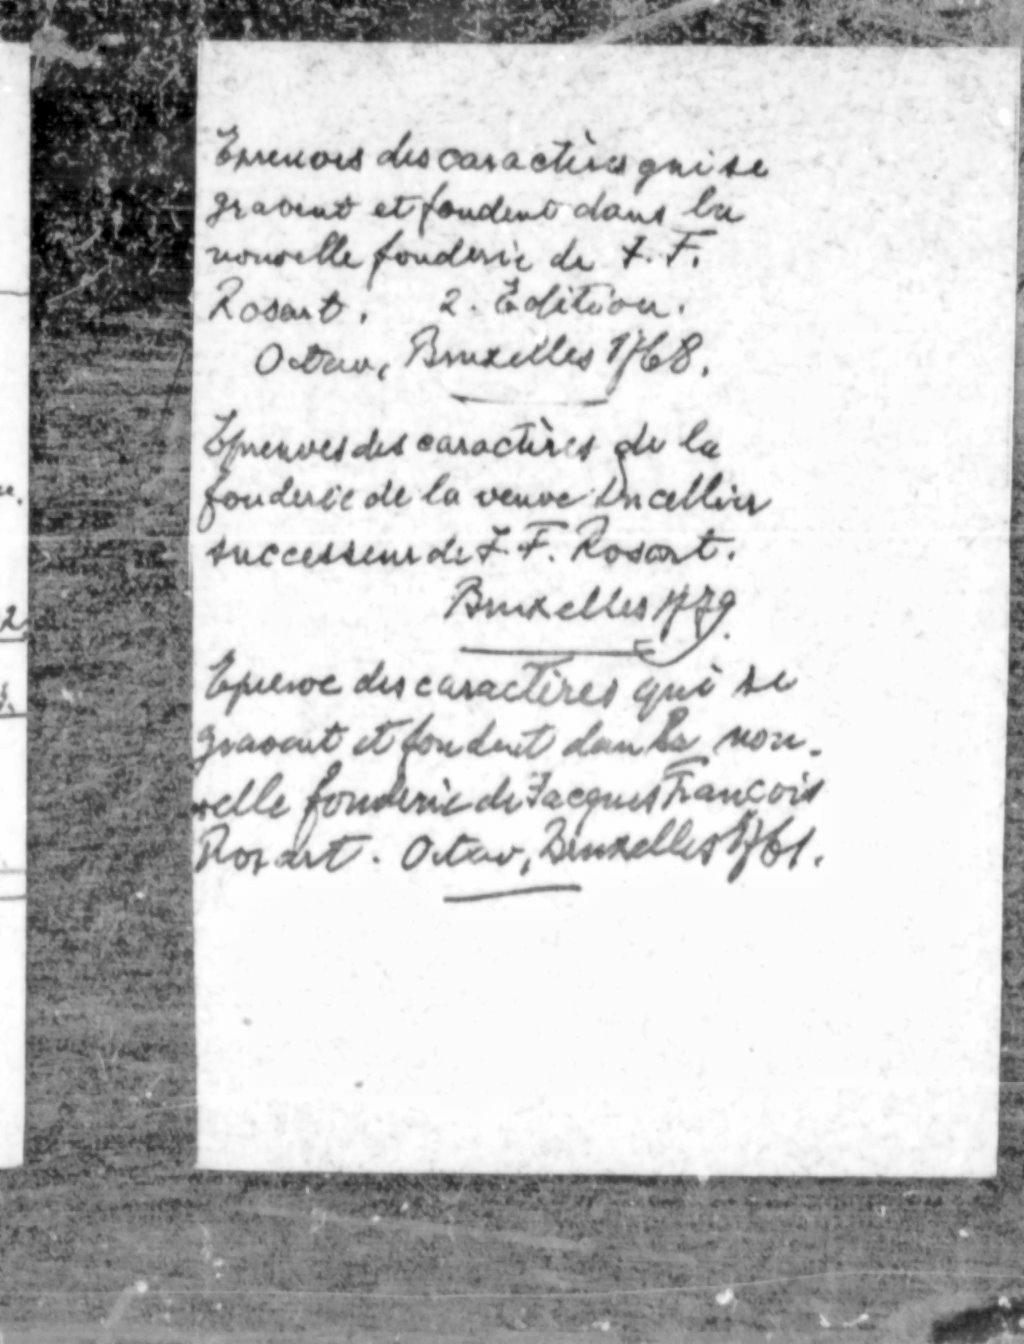 Epreuves des caractères qui se
gravent et fondent dans la
nouvelle fonderie de J. F.
Rosart. 2. Edition.
Octav, Bruxelles 1768.
Epreuves des caractères de la
fonderie de la veuve Decellier
successeur de J. F. Rosart.
Bruxelles 1779.
Epreuve des caractères qui se
gravent et fondent dans la nou-
velle fonderie de Jacques François
Rosart. Octav, Bruxelles 1761.
2